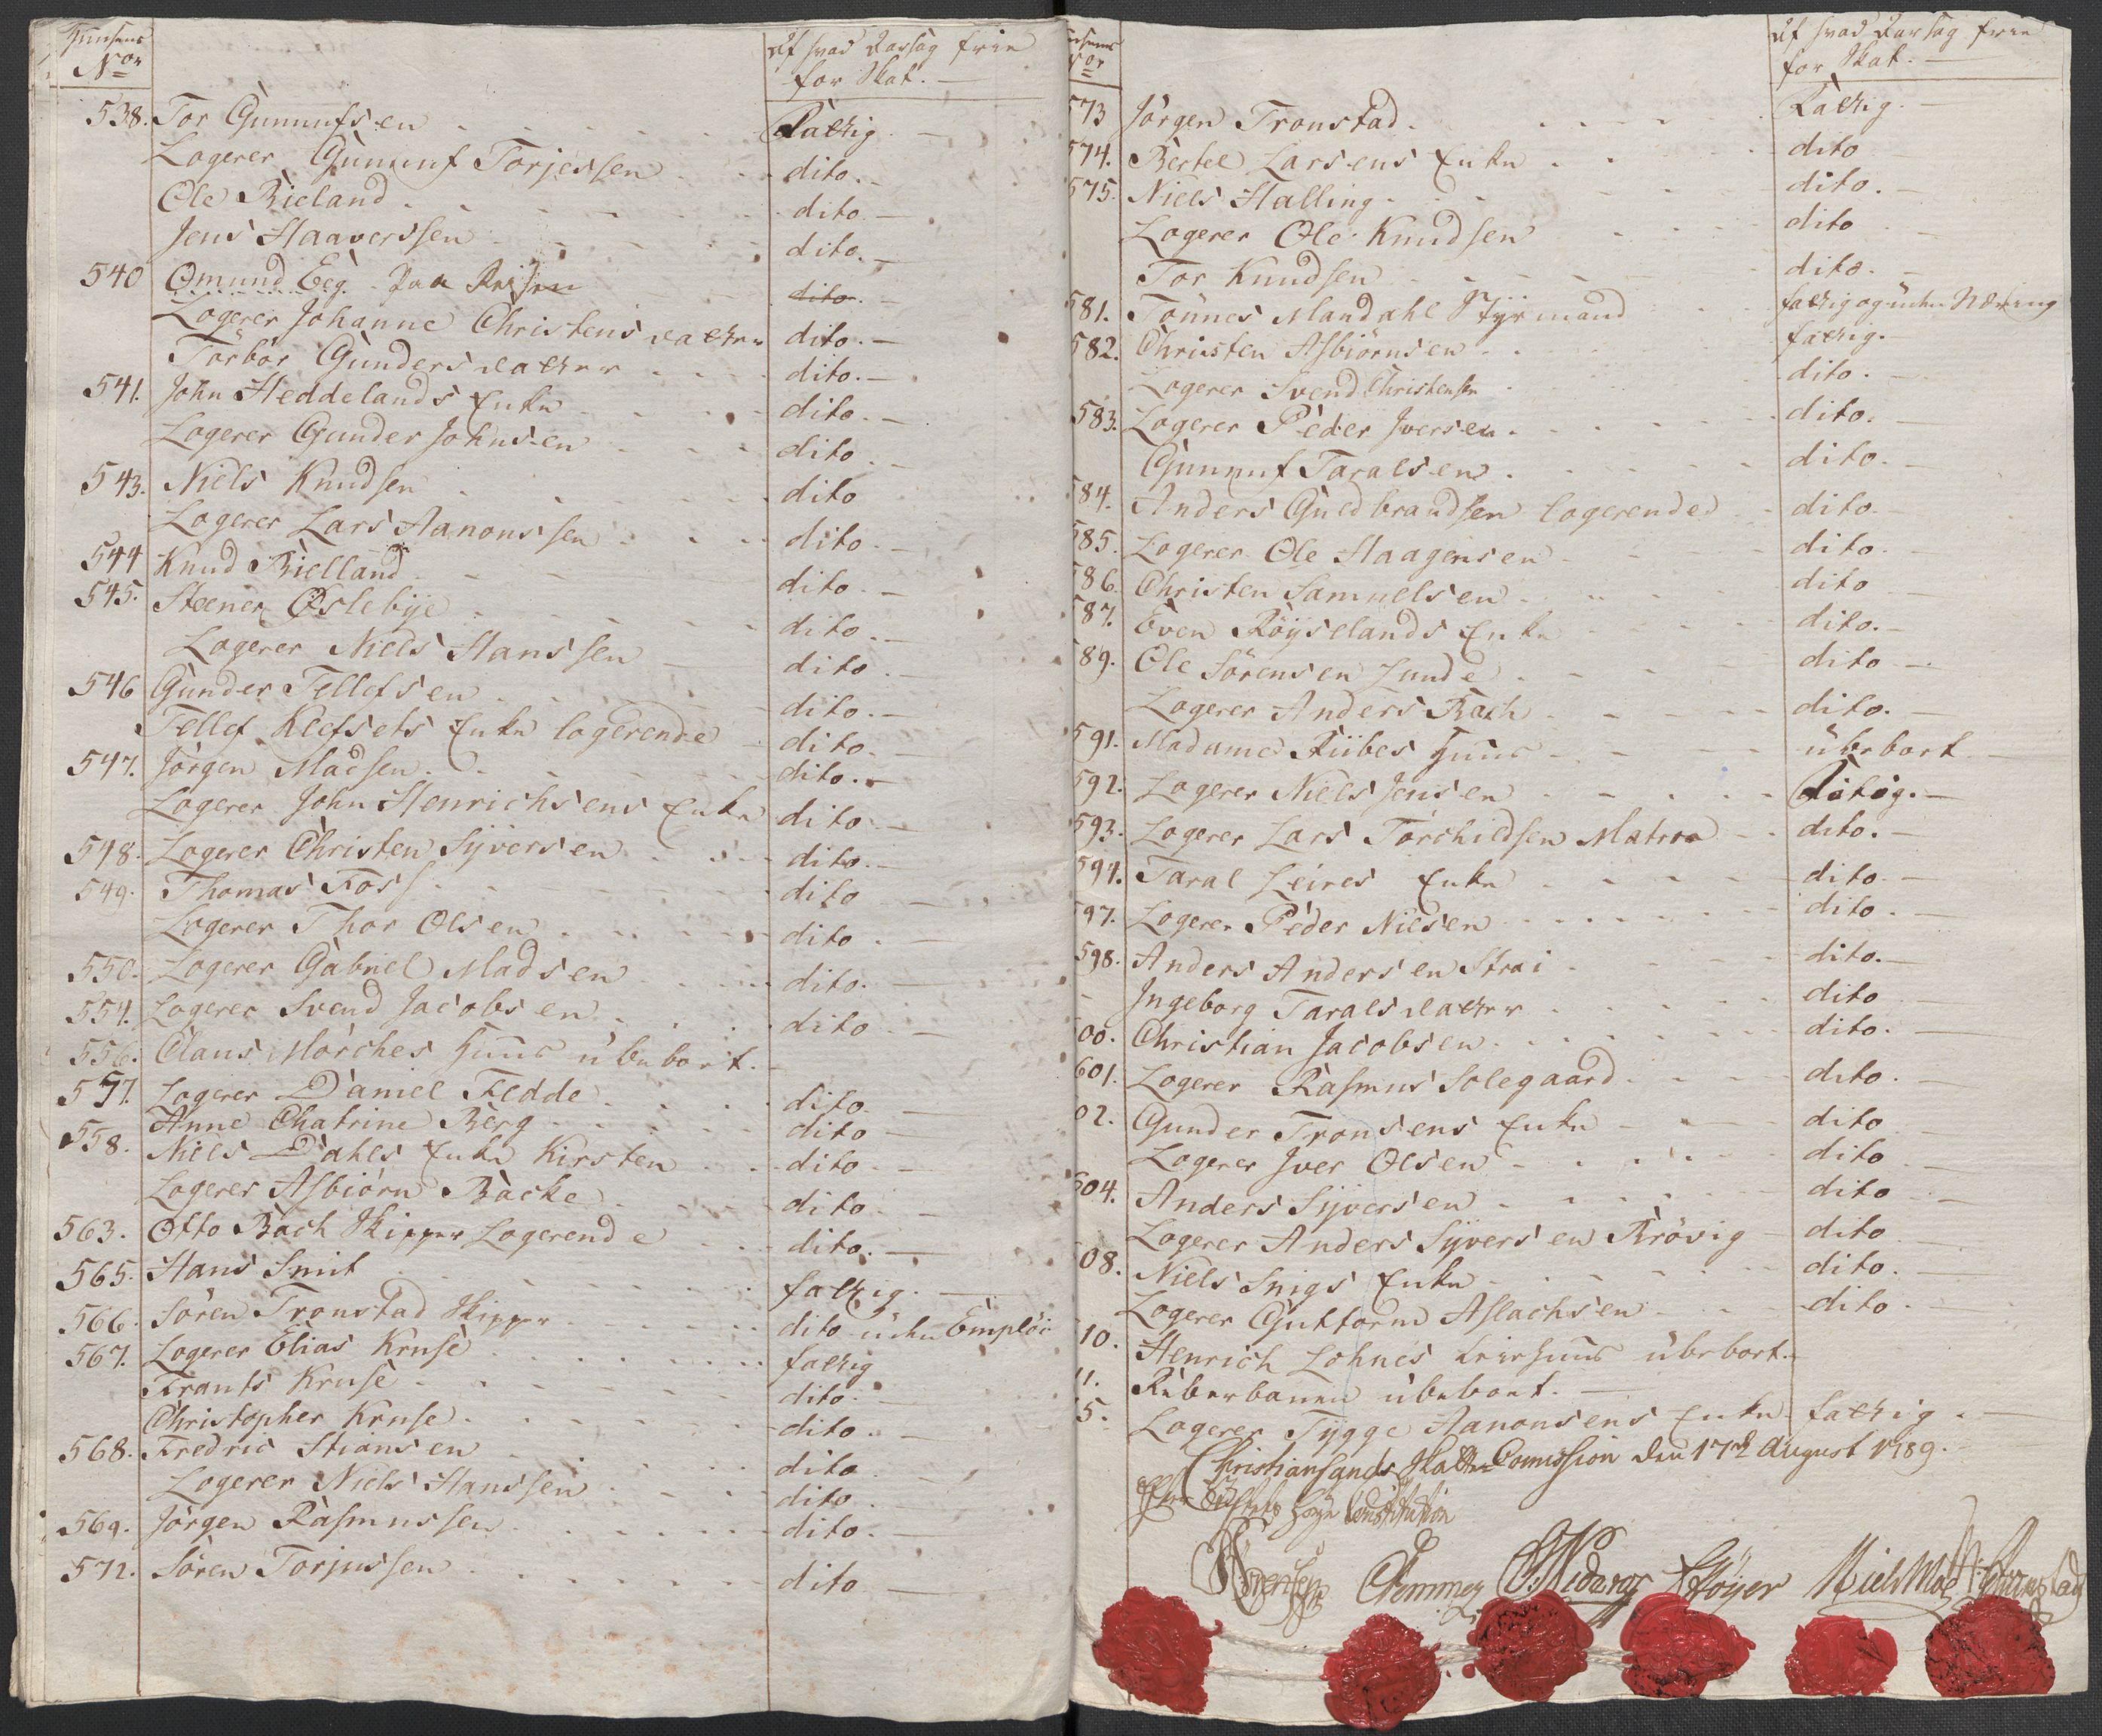 Huusenes
No
Af hvad Aarsag frie
for Skat.
538. Tor Gunnufsen dito Fattig
Logerer Gunnuf Torjessen dito
Ole Bieland dito
Jens Haaverssen dito
540 Omund Eeg paa Reisen dito
Logerer Johanne Christens datter dito
Torbor Gunders datter dito
541. John Heddelands Enke dito
Logerer Gunder Johnsen dito
543. Niels Knudsen dito
Logerer Lars Aanonssen dito
544 Knud Bielland dito
545. Steener Oslebije dito
Logerer Niels Hanssen dito
546 Gunder Tellefsen dito
Tellef Klefsets Enke logerende dito
547. Jørgen Madsen dito
Logerer John Henrichsens Enke dito
548. Logerer Christen Sijversen dito
549. Thomas Foss dito
Logerer Thor Olsen dito
550. Logerer Gabriel Madsen dito
554. Logerer Svend Jacobsen dito
556. Claus Mørches Huus ubeboet.
557. Logerer Daniel Fedde dito
Anne Chatrine Berg dito
558. Niels Dahls Enke Kirsten dito
Logerer Asbiørn Backe dito
563. Otto Bach Skipper Logerende dito
565. Hans Smit fattig
566. Søren Tronstad Skipper dito uden Emploi
567. Logerer Elias Kruse fattig
Frants Kruse dito
Christopher Kruse dito
568. Fredric Stiansen dito
Logerer Niels Hanssen dito
569. Jørgen Rasmussen dito
572. Søren Torjussen dito
Af hvad Aarsag frie
for Skat.
573 Jørgen Tronstad Fattig
574. Bertel Larsens Enke dito
575. Niels Halling dito
Logerer Ole Knudsen dito
Tor Knudsen dito
581. Tønnes Mandahl Styrmand fattig og uden Næring
582. Christen Asbiørnsen fattig
Logerer Svend Christensen dito
583. Logerer Peder Iversen dito
Gunnuf Taralsen dito
84. Anders Guldbrandsen logerende dito
585. Logerer Ole Haagensen dito
86. Christen Samuelsen dito
87. Even Røijselands Enke dito
89. Ole Sørensen Lunde dito
Logerer Anders Bach dito
591. Madame Riibes Huus ubeboet
592. Logerer Niels Jensen fattig
593. Logerer Lars Torchildsen Matros dito
594. Taral Leires Enke dito
597. Logerer Peder Nielsen dito
598. Anders Andersen Strai dito
Ingeborg Tarals datter dito
00. Christian Jacobsen dito
601. Logerer Rasmus Solegaard dito
02. Gunder Tronsens Enke dito
Logerer Iver Olsen dito
604. Anders Sijversen dito
Logerer Anders Sijversen Krøvig dito
08. Niels Snigs Enke dito
Logerer Guttorm Aslachsen dito
10. Henrich Lohnes huus ubeboet
11. Reberbanen ubeboet.
5. Logerer Tygge Aanonsens Enke fattig
Christiansands Skatte Comission den 17de August 1789.
Constitution
Niels Moe